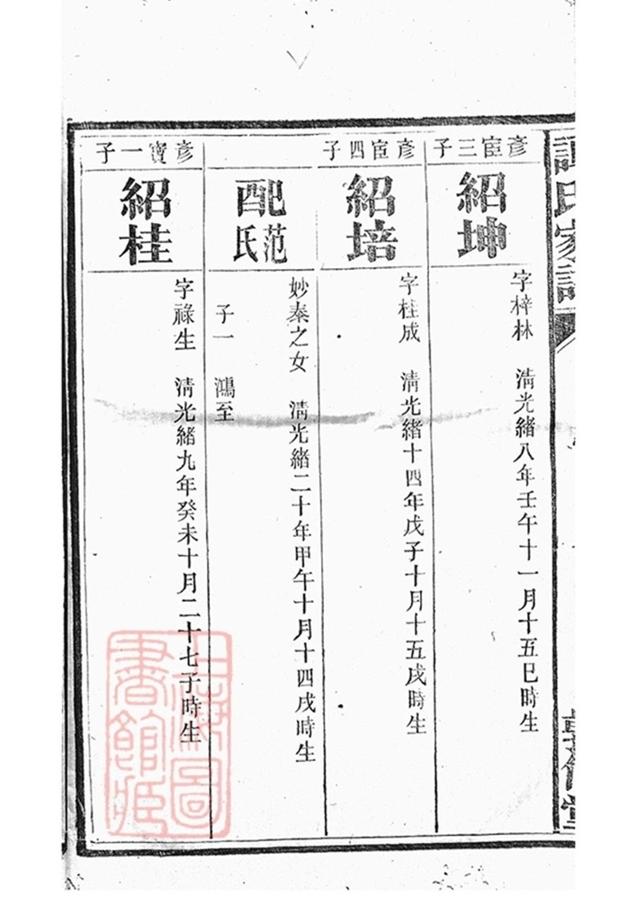 譚氏家譜
彥宦三子
紹坤
字梓林　清光緒八年壬午十一月十五巳時生
彥宦四子
紹培
字桂成　清光緒十四年戊子十月十五戌時生
配范氏
妙泰之女　清光緒二十年甲午十月十四戌時生
子一　鴻至
彥寶一子
紹桂
字祿生　清光緒九年癸未十月二十七子時生
上海圖
書館藏